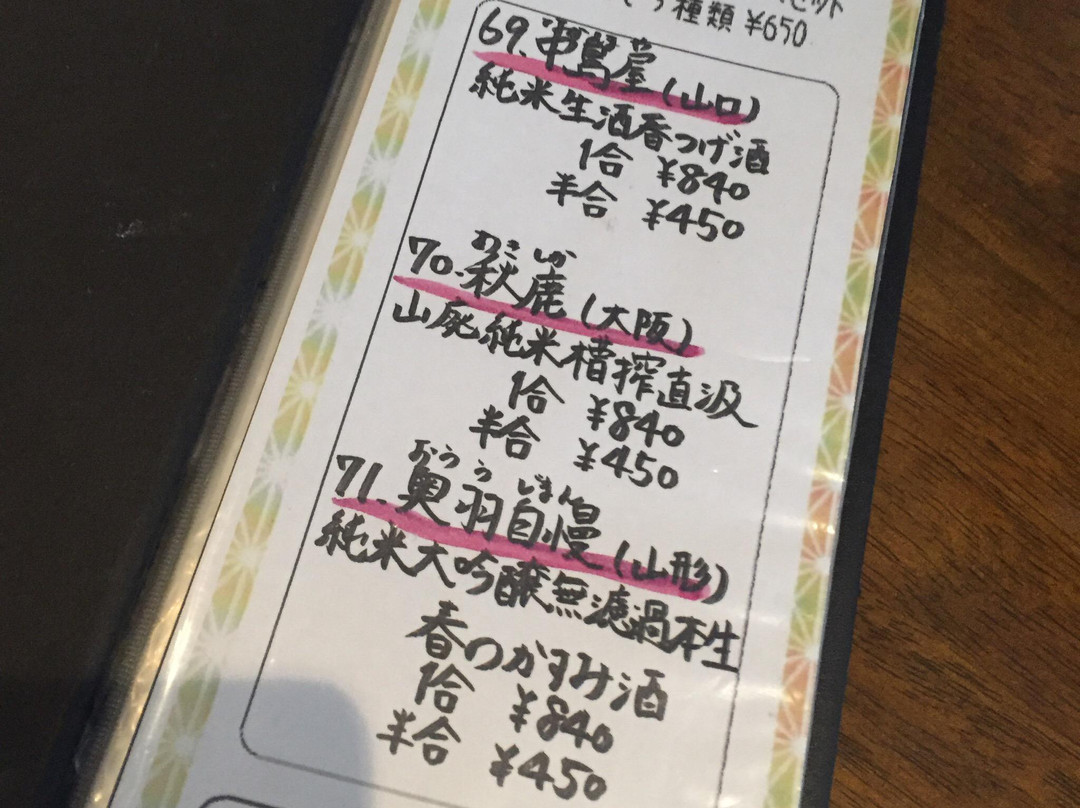 セット
種類 ¥650
69.
屋(山口)
純米生酒香つげ酒
1合 ¥840
半合 ¥450
あきしか
70.秋鹿(大阪)
山廃純米槽搾直汲
1合 ¥840
半合 ¥450
おうう じまん
71.奥羽自慢(山形)
純米大吟醸無濾過本生
春のかすみ酒
1合 ¥840
半合 ¥450